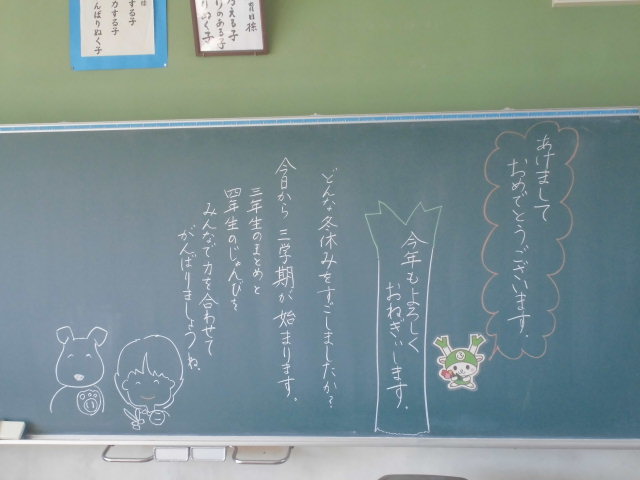 あけまして
おめでとうございます。
今年もよろしく
おねがいします。
どんな冬休みをすごしましたか?
今日から 三学期が 始まります。
三年生のまとめと
四年生のじゅんびを
みんなで力を合わせて
がんばりましょうね。
力する子
んばりぬく子
育目標
える子
りのある子
りぬく子